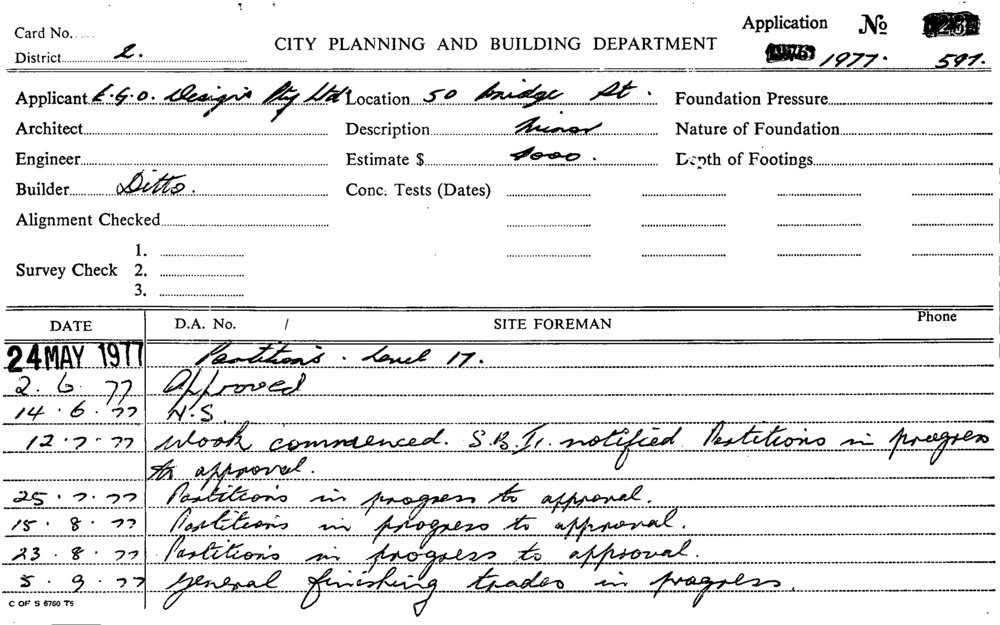 Card No.
Application No
CITY PLANNING AND BUILDING DEPARTMENT
District 2.
1977. 597.
Applicant E.G.O. Designs Pty Ltd Location 50 Bridge St. Foundation Pressure
Architect Description Minor Nature of Foundation
Engineer Estimate $ 000. Depth of Footings
Builder Ditto. Conc. Tests (Dates)
Alignment Checked
1.
Survey Check 2.
3.
DATE D.A. No. / SITE FOREMAN Phone
24 MAY 1977 Partitions. Level 17.
2.6.77 Approved
14.6.77 N.S.
12.7.77 Work commenced. notified Partitions in progress
to approval.
25.7.77 Partitions in progress to approval.
15.8.77 Partitions in progress to approval.
23.8.77 Partitions in progress to approval.
5.9.77 General finishing trades in progress.
C OF S 6760 T5